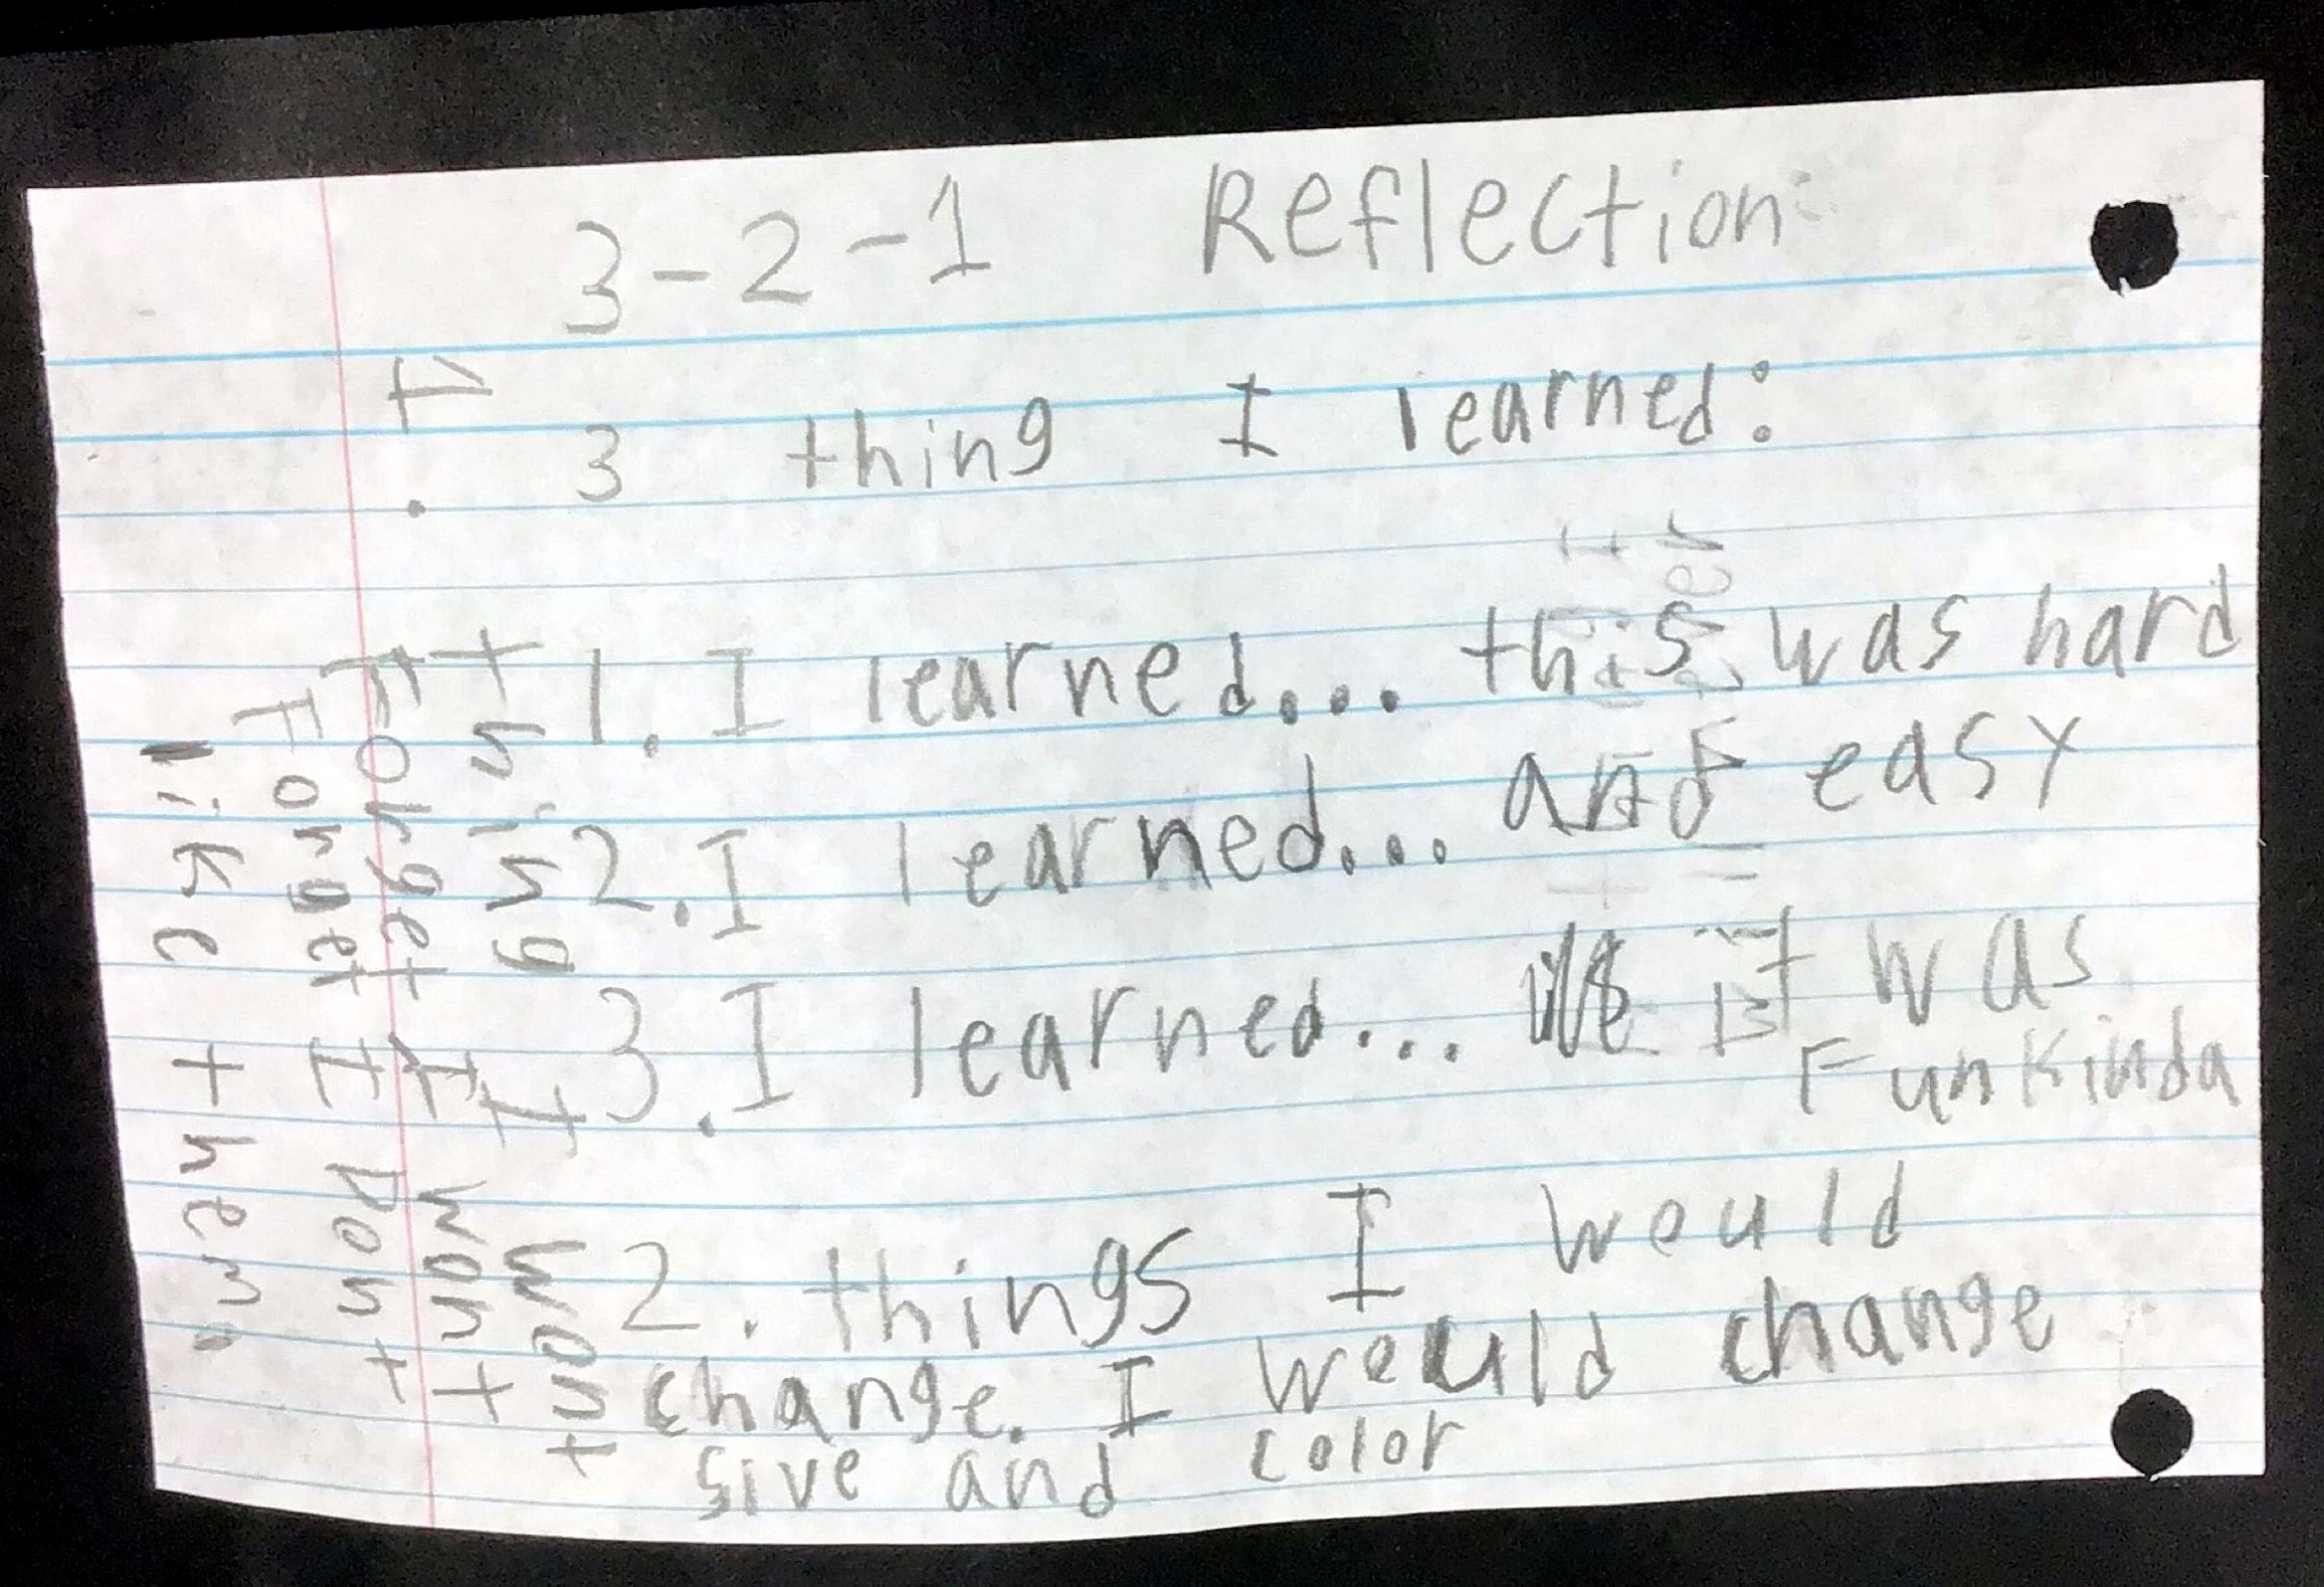 3-2-1 Reflection
3 thing I learned:
1. I learned... this was hard
2. I learned... and easy
3. I learned... it was
Fun Kinda
2. things I would
change. I would change
sive and color
1. thing I wont
Forget I wont
Forget I Dont
like them.